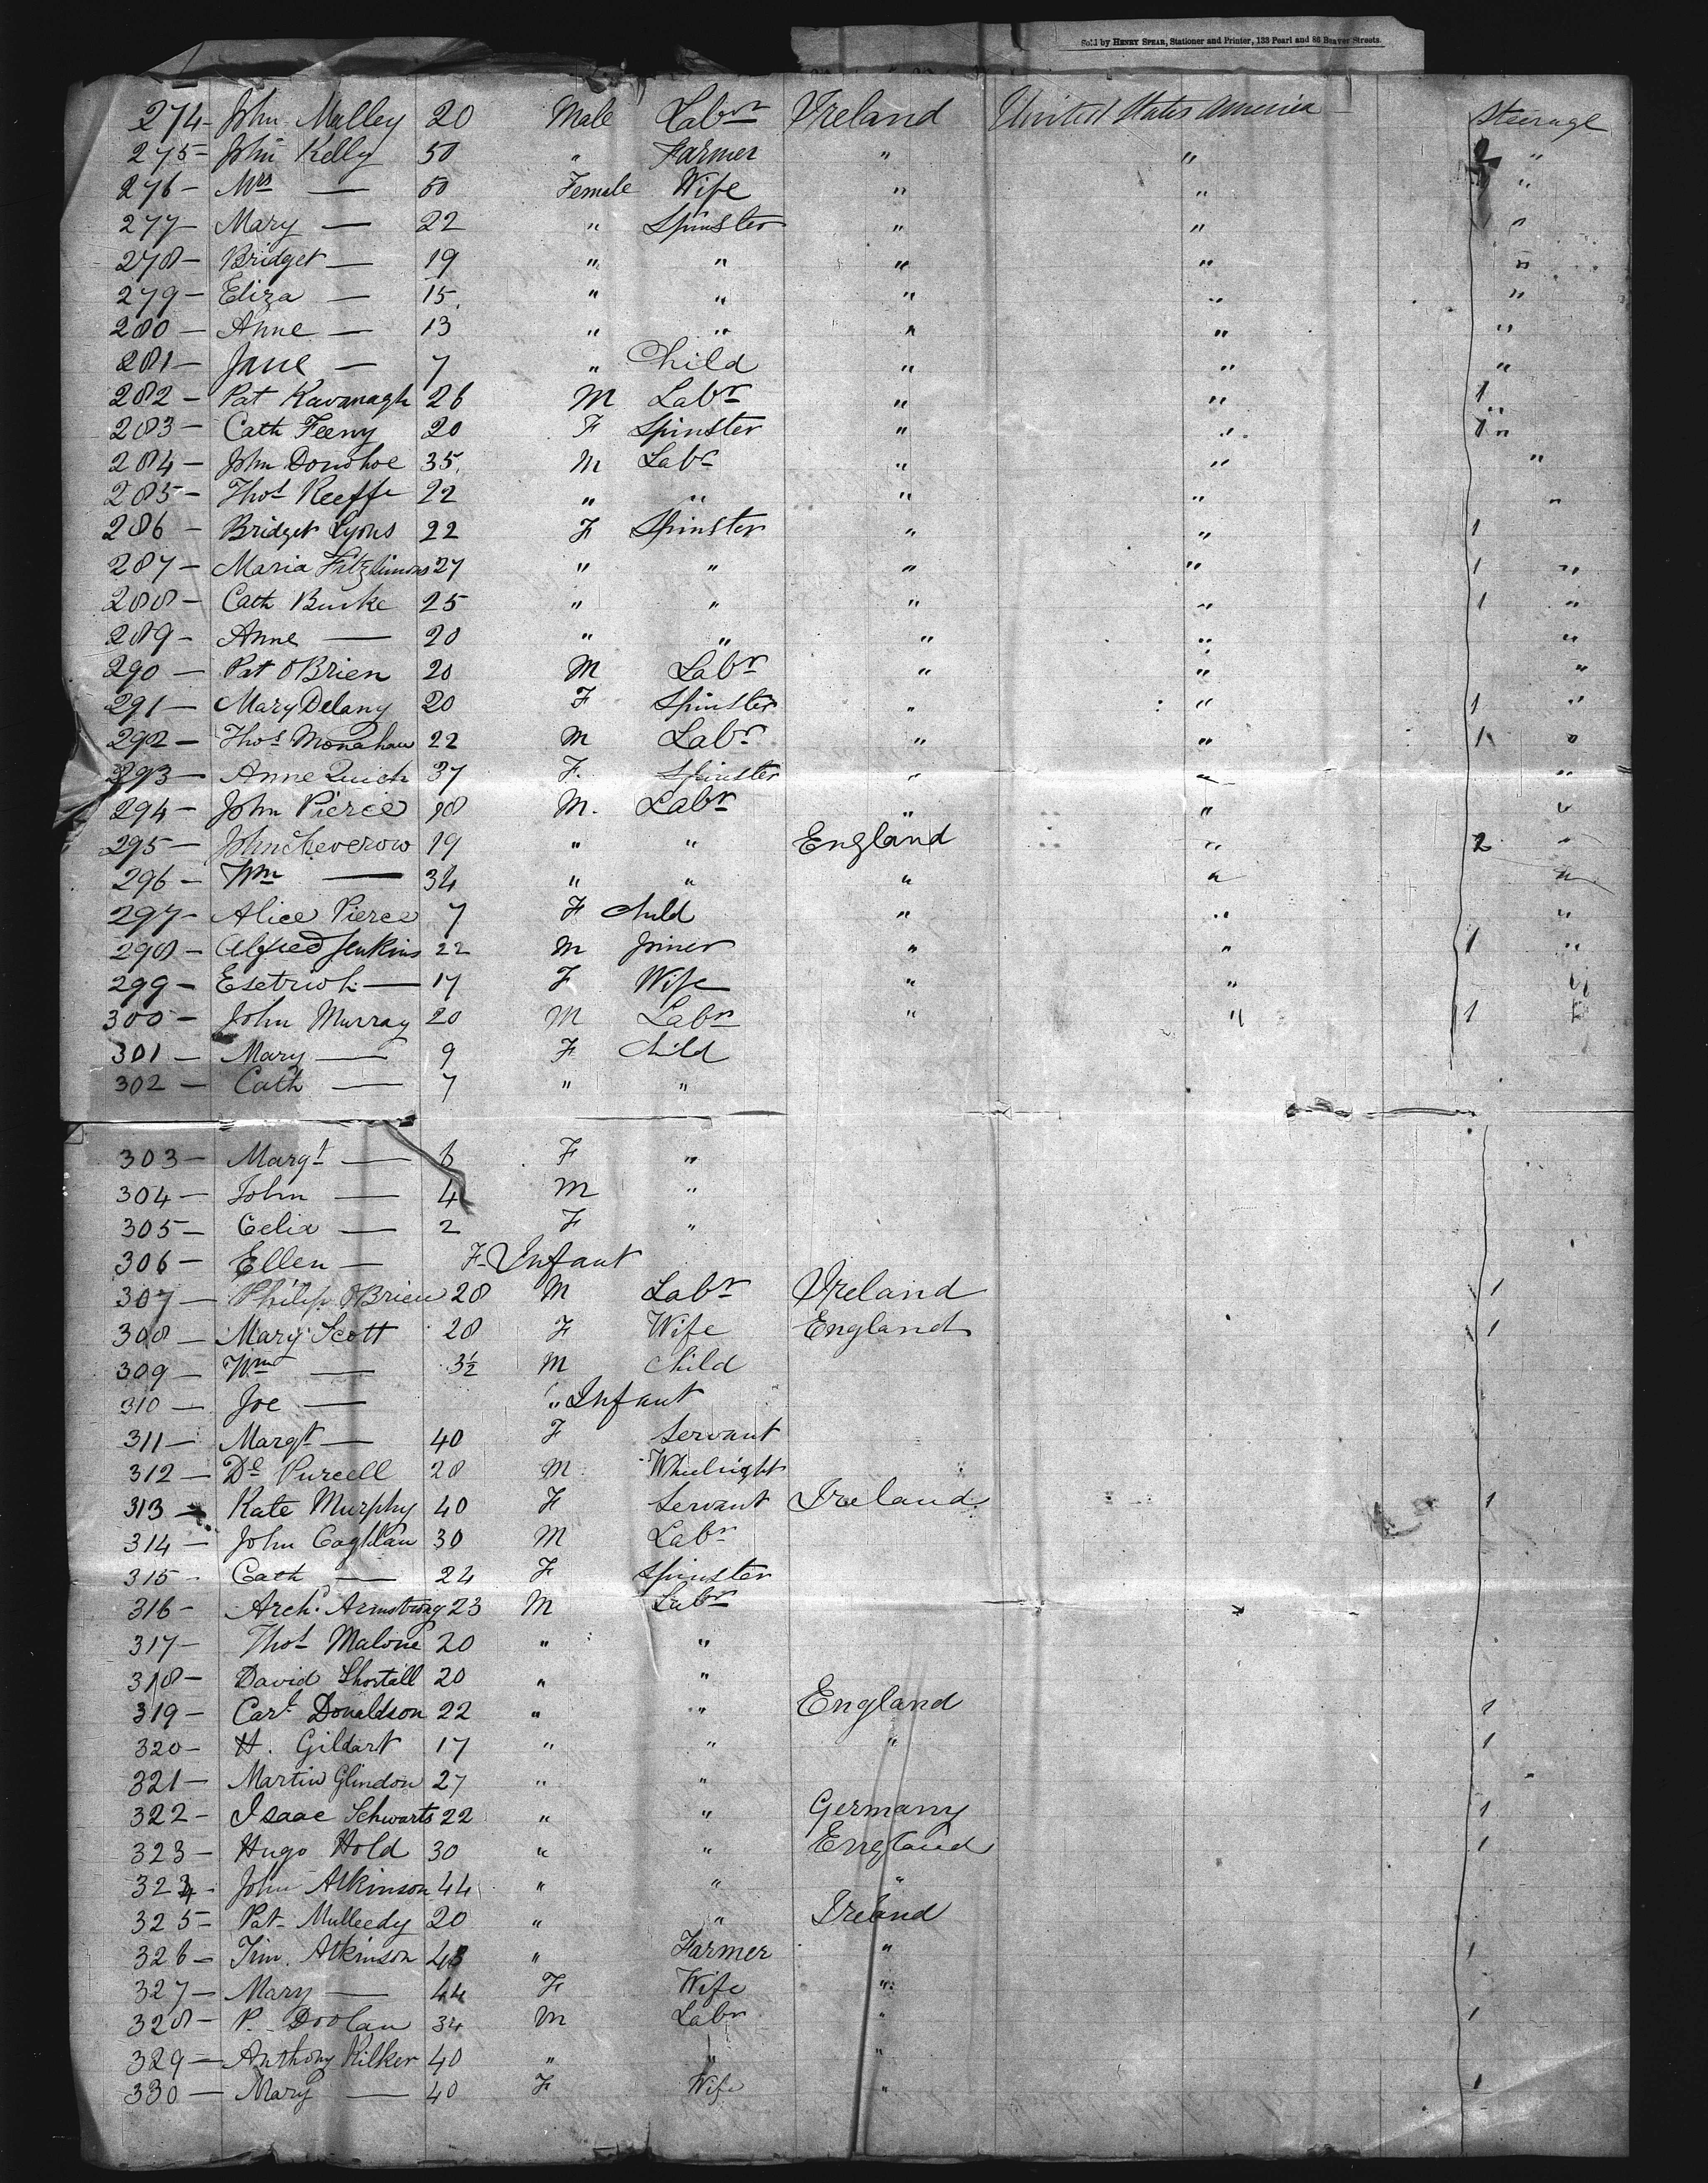 Sold by HENRY SPEAR, Stationer and Printer, 133 Pearl and 86 Beaver Streets.
274 - John Malley 20 Male Labr Ireland United States America Steerage
275 - John Kelly 50 " Farmer " " 2 "
276 - Mrs — 50 Female Wife " " "
277 - Mary — 22 " Spinster " " 1 "
278 - Bridget — 19 " " " " "
279 - Eliza — 15 " " " " "
280 - Anne — 13 " " " " "
281 - Jane — 7 " Child " " "
282 - Pat Kavanagh 26 M Labr " " 1 "
283 - Cath Feeny 20 F Spinster " " 1 "
284 - John Donohoe 35 M Labr " " "
285 - Thos Keeffe 22 " " " " "
286 - Bridget Lyons 22 F Spinster " " 1
287 - Maria Fitzsimons 27 " " " " 1 "
288 - Cath Burke 25 " " " " 1 "
289 - Anne — 20 " " " " "
290 - Pat OBrien 20 M Labr " " "
291 - Mary Delany 20 F Spinster " " 1 "
292 - Thos Monahan 22 M Labr " " 1 "
293 - Anne Quich 37 F. Spinster " " "
294 - John Pierce M. Labr " " "
295 - John 19 " " England " 2 "
296 - Wm — 34 " " " " "
297 - Alice Pierce 7 F Child " " "
298 - Alfred Jenkins 22 M Joiner " " 1 "
299 - — 17 F Wife " " "
300 - John Murray 20 M Labr " " 1 "
301 - Mary — 9 F Child
302 - Cath — 7 " "
303 - Margt — 6 F "
304 - John — 4 M "
305 - Celia — 2 F "
306 - Ellen — F - Infant
307 - Philip OBrien 28 M Labr Ireland 1
308 - Mary Scott 28 F Wife England 1
309 - Wm — 3½ M Child
310 - Joe — " Infant
311 - Margt — 40 F Servant
312 - Purcell 28 M Wheelright
313 - Kate Murphy 40 F Servant Ireland 1
314 - John Coghlan 30 M Labr
315 - Cath — 24 F Spinster
316 - Archd Armstrong 23 M Labr
317 - Thos Malone 20 " "
318 - David Shortall 20 " "
319 - Donaldson 22 " " England 1
320 - H. Gildart 17 " " " 1
321 - Martin Glindon 27 " "
322 - Isaac Schwarts 22 " " Germany 1
323 - Hugo Hold 30 " " England 1
324 - John Atkinson 44 " " "
325 - Pat Mulleedy 20 " " Ireland
326 - Jim Atkinson 43 " Farmer " 1
327 - Mary — 44 F Wife "
328 - P. Doolan 34 M Labr " 1
329 - Anthony Kilker 40 " " "
330 - Mary — 40 F Wife " 1